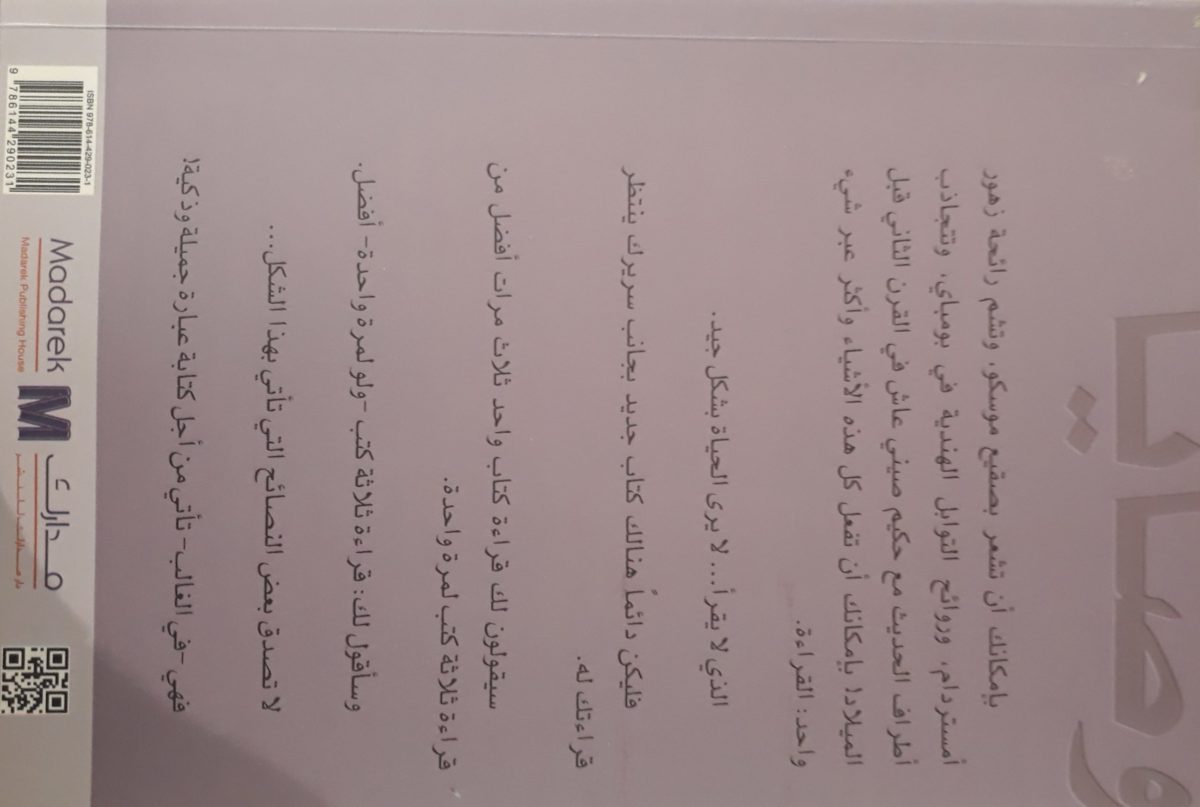 وصايا
بإمكانك أن تشعر بصقيع موسكو، وتشم رائحة زهور
أمستردام، وروائح التوابل الهندية في بومباي، وتتجاذب
أطراف الحديث مع حكيم صيني عاش في القرن الثاني قبل
الميلاد! بإمكانك أن تفعل كل هذه الأشياء وأكثر عبر شيء
واحد: القراءة.
الذي لا يقرأ... لا يرى الحياة بشكل جيد.
فليكن دائماً هنالك كتاب جديد بجانب سريرك ينتظر
قراءتك له.
سيقولون لك قراءة كتاب واحد ثلاث مرات أفضل من
قراءة ثلاثة كتب لمرة واحدة.
وسأقول لك: قراءة ثلاثة كتب -ولو لمرة واحدة- أفضل.
لا تصدق بعض النصائح التي تأتي بهذا الشكل...
فهي -في الغالب- تأتي من أجل كتابة عبارة جميلة وذكية!
ISBN 978-614-429-023-1
9 786144 290231
Madarek
Madarek Publishing House
مدارك
دار مدارك للنشر